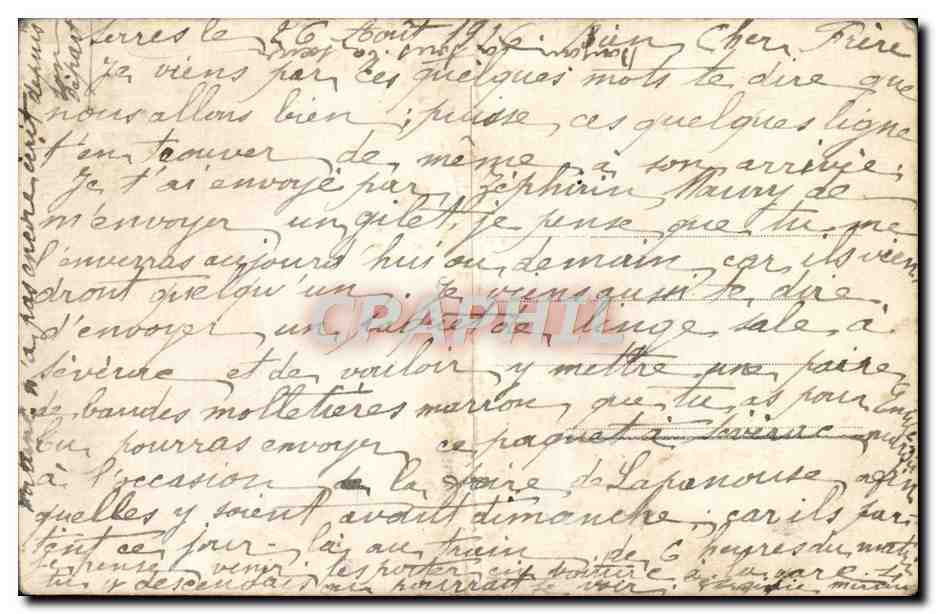 Serres le 26 Août 1916. Bien Cher Frère
Je viens par ces quelques mots te dire que
nous allons bien ; puisse ces quelques ligne
t'en trouver de même à son arrivée.
Je t'ai envoyé par Zéphirin Maury de
m'envoyer un gilet, je pense que tu me
l'enverras aujourd'hui ou demain car ils vien
dront quelqu'un. Je viens aussi te dire
d'envoyer un paquet de linge sale à
Sévérac et de vouloir y mettre une paire
de bandes molletières marron que tu as pour
tu pourras envoyer ce paquet à Sévérac
à l'occasion de la foire de Lapanouse afin
quelles y soient avant dimanche ; car ils par-
tent ce jour-là au train de 6 heures du matin
je pense venir les porter en voiture à la gare si
tu y descendais on pourrait se voir
n'a pas encore écrit depuis
son départ
CPAPHIL